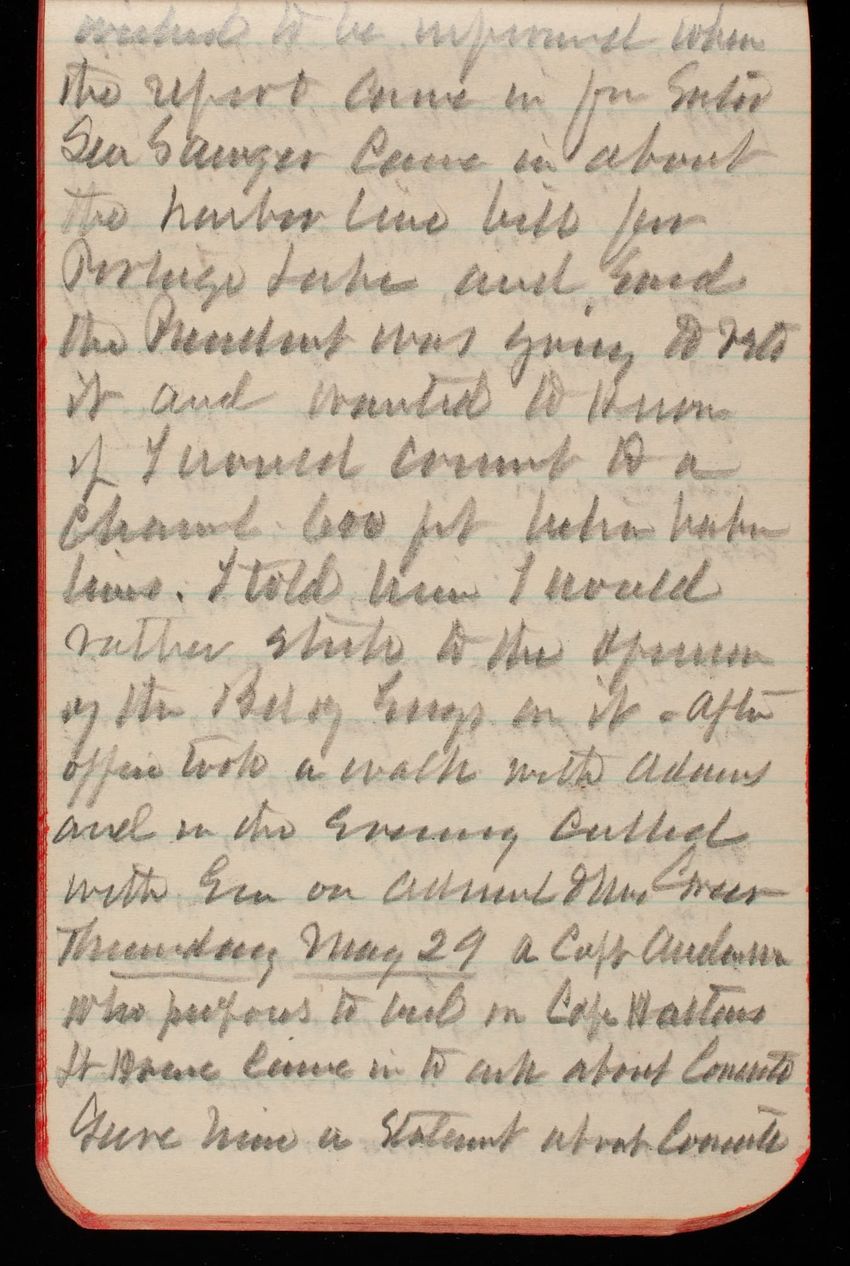 wished to be informed when
the report came in for Exten
Gen Sawyer came in about
the harbor line bill for
Portage Lake and said
the President was going to veto
it and wanted to know
if I would consent to a
Channel 600 ft betwn harbor
lines. I told him I would
rather stick to the opinion
of the Bd of Engrs on it. After
office took a walk with Adams
and in the Evening called
with Em on Admiral & Mrs Greer
Thursday May 29 a Capt Anderson
who proposes to bid on Cape Hatteras
Lt House came in to ask about Concrete
Gave him a Statemt about Concrete